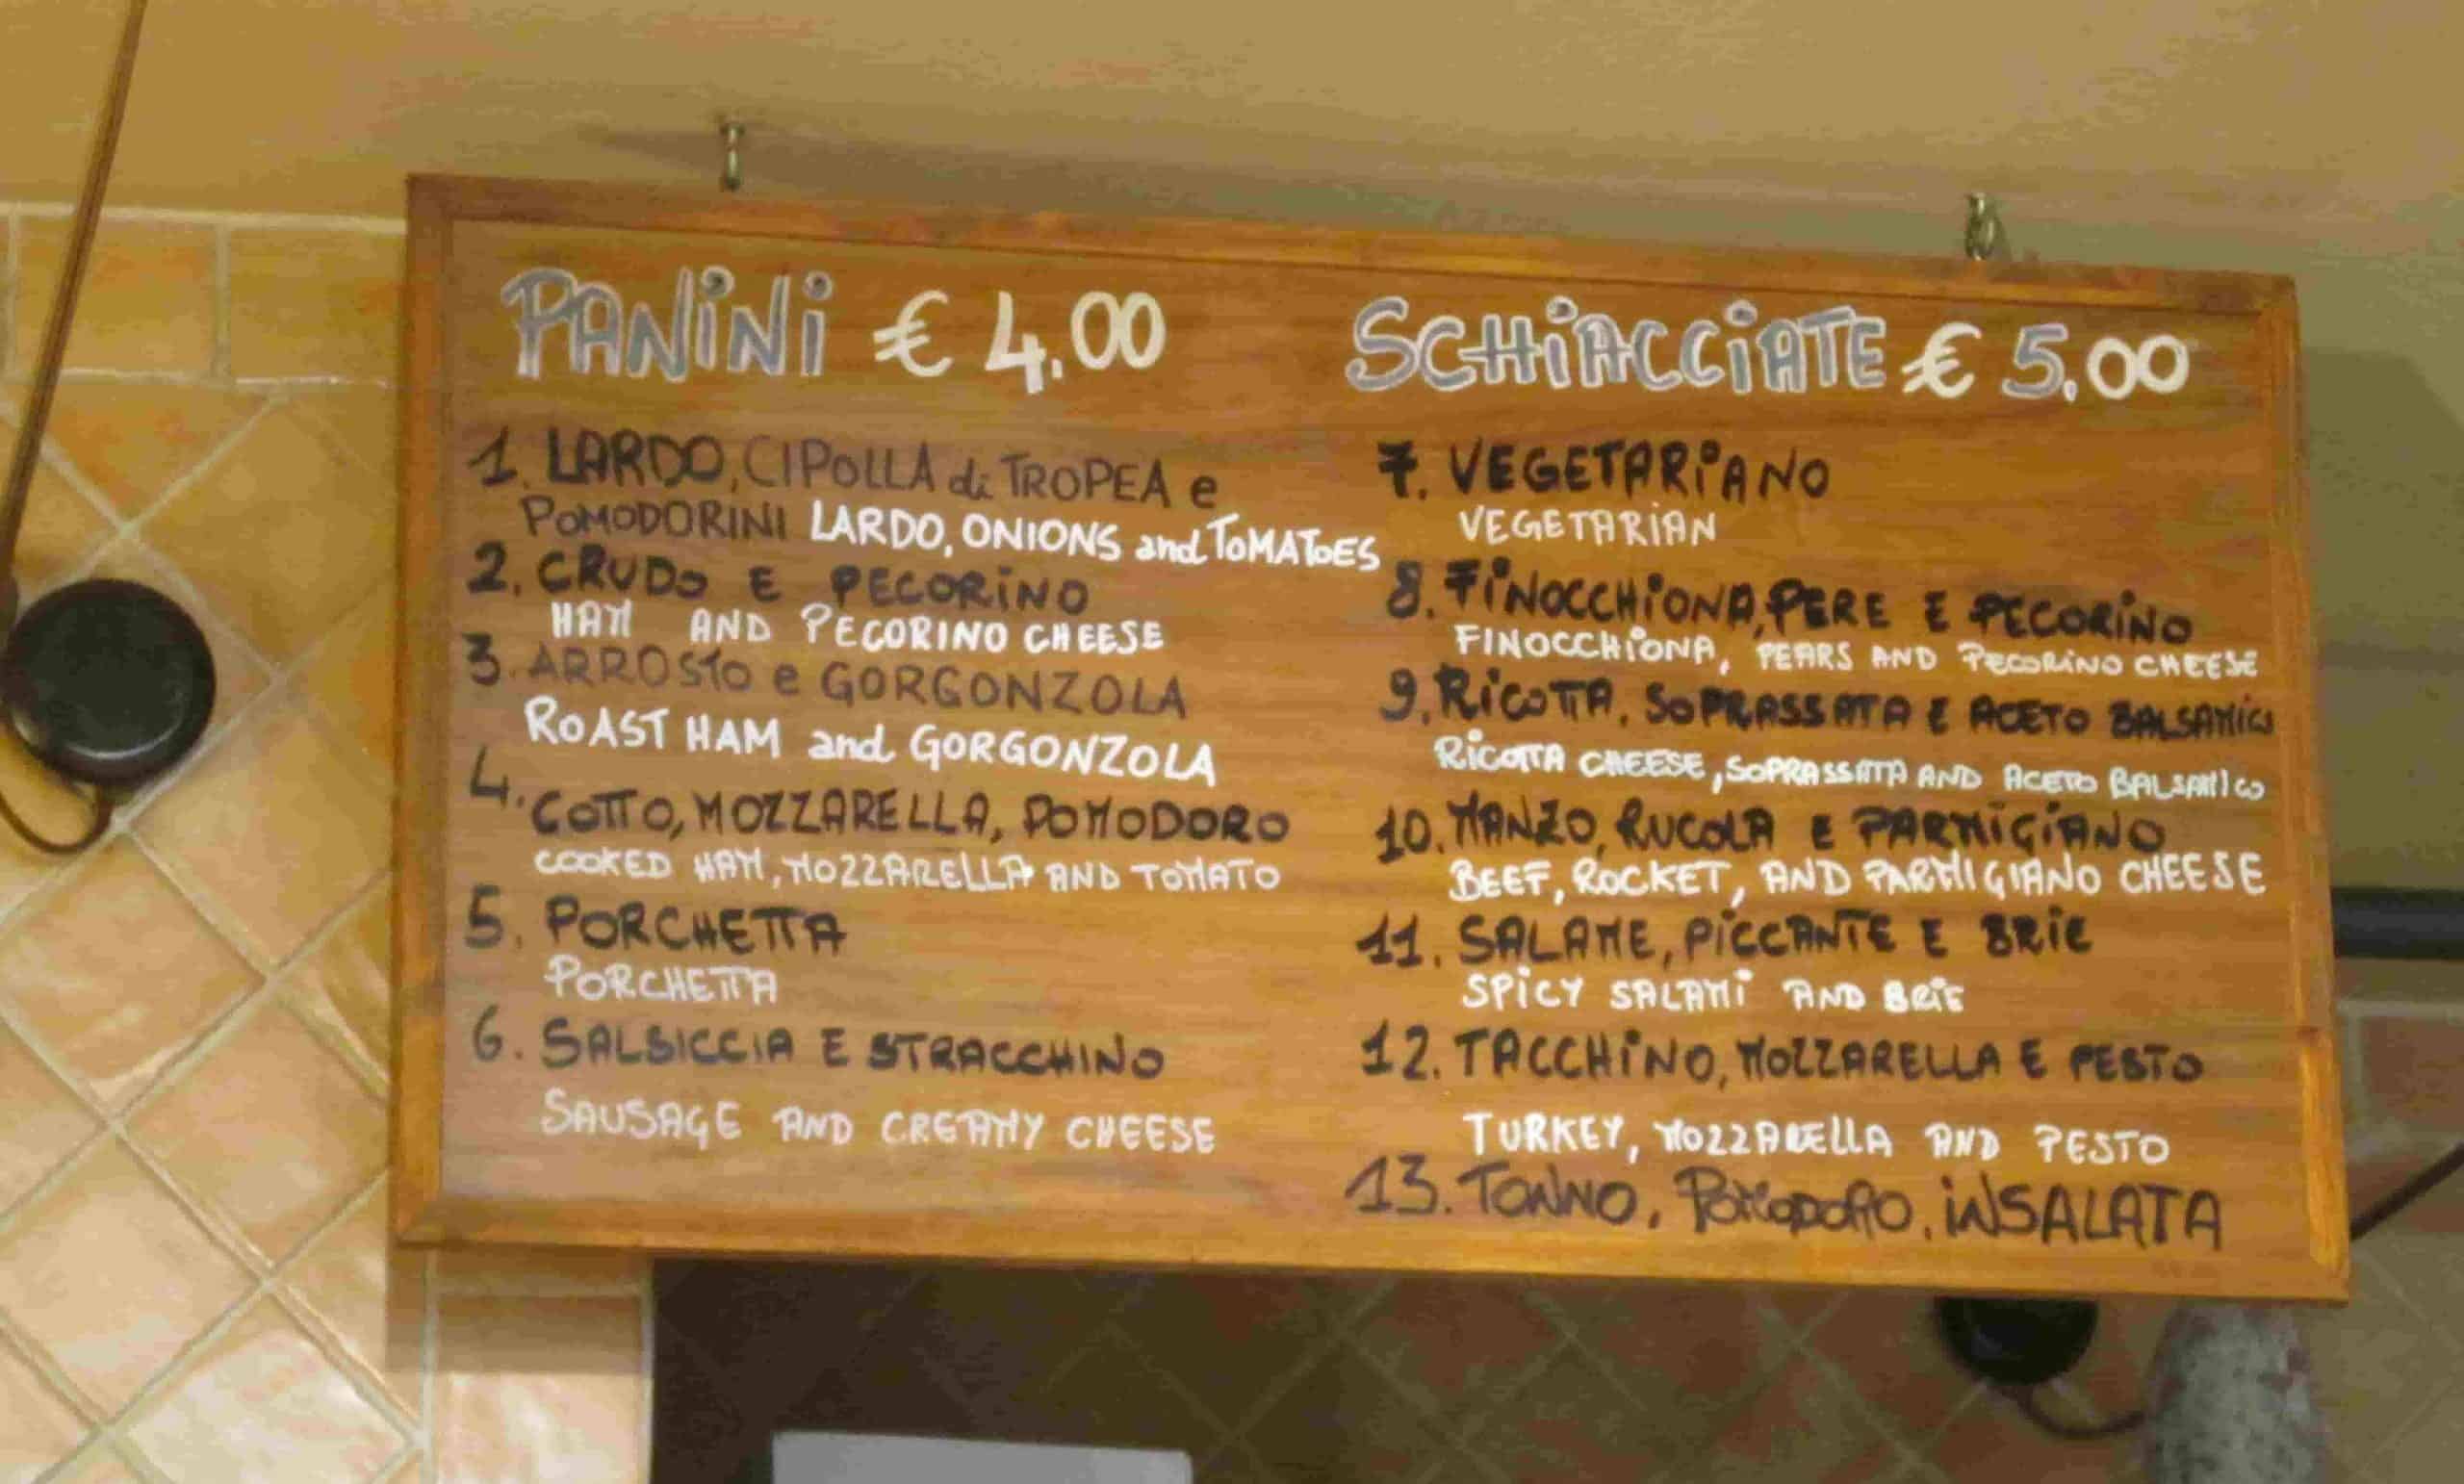 PANINI € 4.00
1. LARDO, CIPOLLA di TROPEA e
POMODORINI LARDO, ONIONS and TOMATOES
2. CRUDO E PECORINO
HAM AND PECORINO CHEESE
3. ARROSTO e GORGONZOLA
ROAST HAM and GORGONZOLA
4. COTTO, MOZZARELLA, POMODORO
COOKED HAM, MOZZARELLA AND TOMATO
5. PORCHETTA
PORCHETTA
6. SALSICCIA E STRACCHINO
SAUSAGE AND CREAMY CHEESE
SCHIACCIATE € 5.00
7. VEGETARIANO
VEGETARIAN
8. FINOCCHIONA, PERE E PECORINO
FINOCCHIONA, PEARS AND PECORINO CHEESE
9. RICOTTA, SOPRASSATA E ACETO BALSAMICO
RICOTTA CHEESE, SOPRASSATA AND ACETO BALSAMICO
10. MANZO, RUCOLA E PARMIGIANO
BEEF, ROCKET, AND PARMIGIANO CHEESE
11. SALAME, PICCANTE E BRIE
SPICY SALAMI AND BRIE
12. TACCHINO, MOZZARELLA E PESTO
TURKEY, MOZZARELLA AND PESTO
13. TONNO, POMODORO, INSALATA